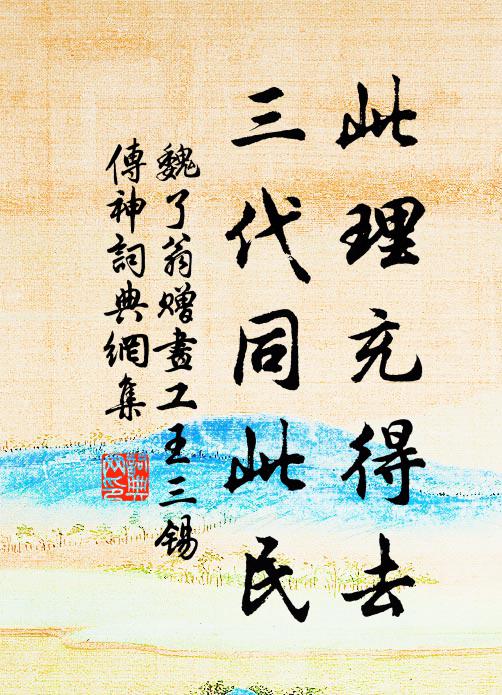 此理充得去
三代同此民
魏了翁赠畫工王三锡
傳神詞典網集
詞典